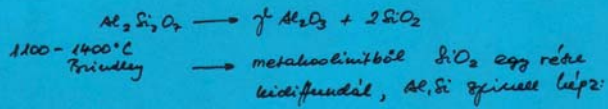 Al₂Si₂O₇ ⟶ γ Al₂O₃ + 2SiO₂
1100–1400°C ⟶ metakaolinitből SiO₂ egy része
Brindley kidiffundál, Al,Si spinell képz.